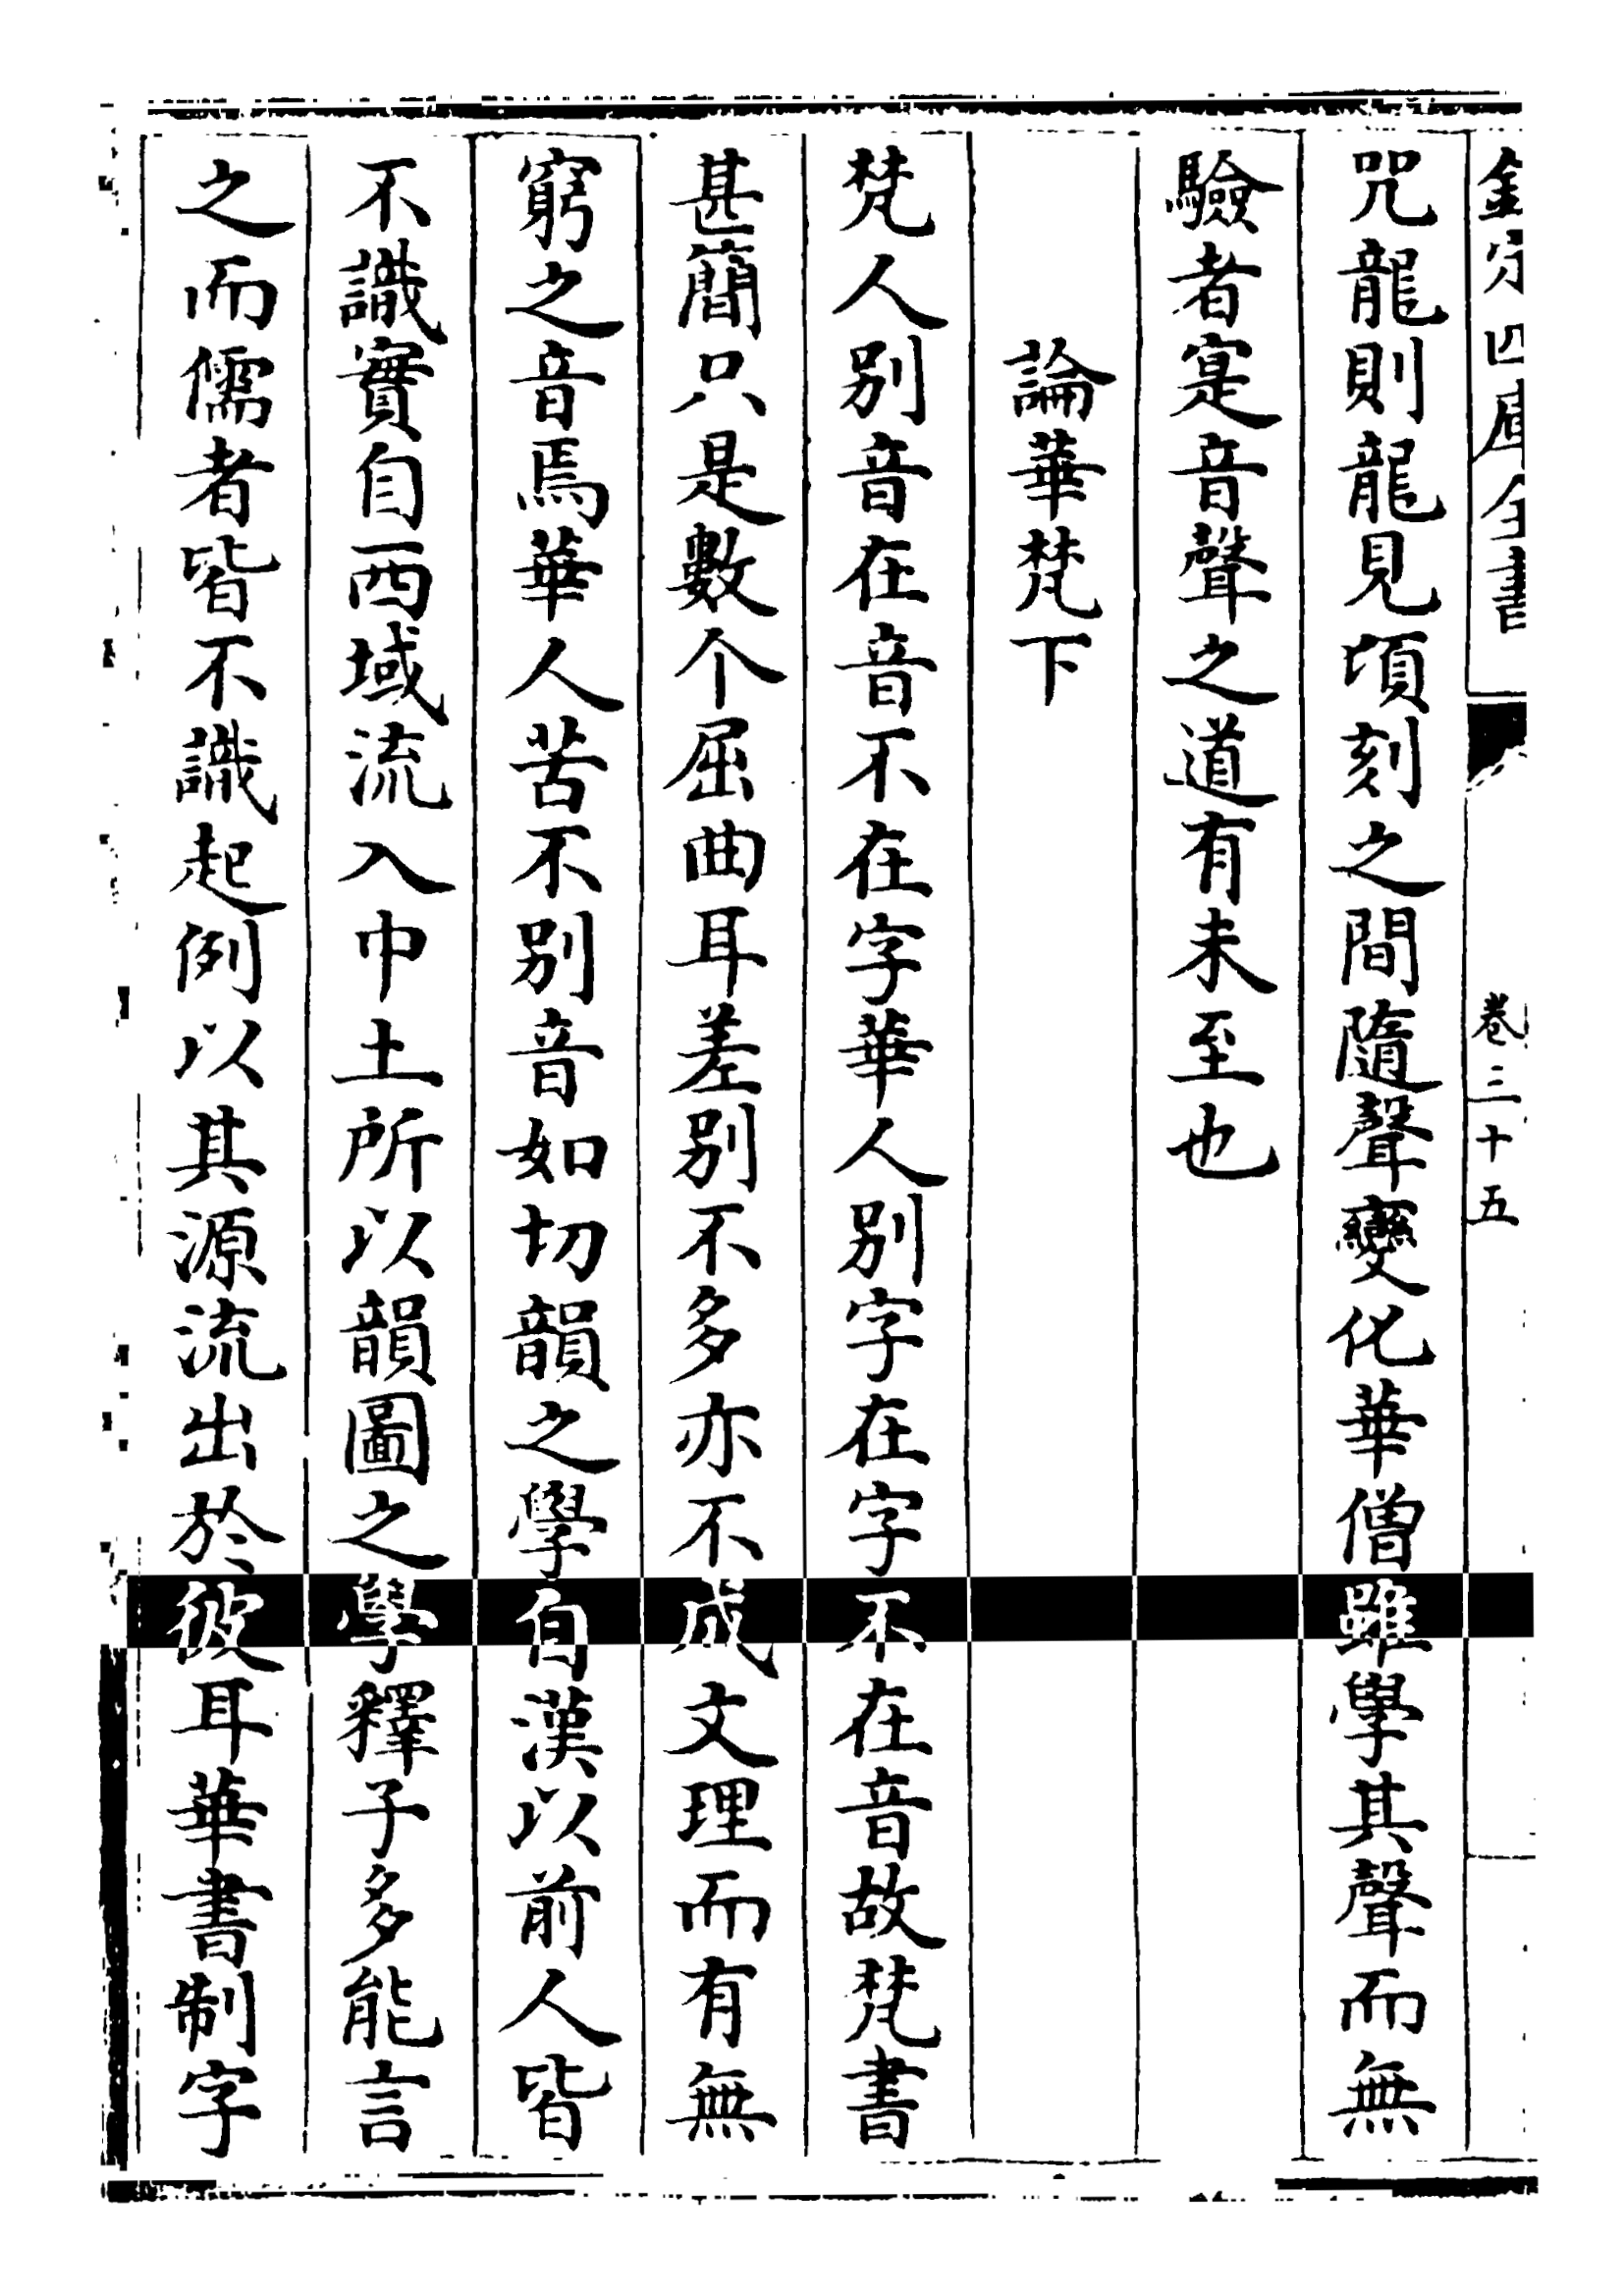 欽定四庫全書
卷三十五
咒龍則龍見頃刻之間隨聲變化華僧雖學其聲而無
驗者寔音聲之道有未至也
論華梵下
梵人别音在音不在字華人别字在字不在音故梵書
甚簡只是數个屈曲耳差别不多亦不成文理而有無
窮之音焉華人苦不别音如切韻之學自漢以前人皆
不識實自西域流入中土所以韻圖之學釋子多能言
之而儒者皆不識起例以其源流出於彼耳華書制字